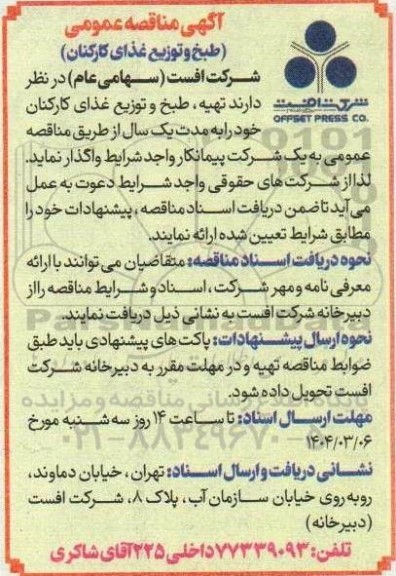 آگهی مناقصه عمومی
(طبخ و توزیع غذای کارکنان)
شرکت افست
OFFSET PRESS CO.
شرکت افست (سهامی عام) در نظر
دارند تهیه ، طبخ و توزیع غذای کارکنان
خود را به مدت یک سال از طریق مناقصه
عمومی به یک شرکت پیمانکار واجد شرایط واگذار نماید.
لذا از شرکت های حقوقی واجد شرایط دعوت به عمل
می آید تا ضمن دریافت اسناد مناقصه ، پیشنهادات خود را
مطابق شرایط تعیین شده ارائه نمایند.
نحوه دریافت اسناد مناقصه: متقاضیان می توانند با ارائه
معرفی نامه و مهر شرکت ، اسناد و شرایط مناقصه را از
دبیرخانه شرکت افست به نشانی ذیل دریافت نمایند.
نحوه ارسال پیشنهادات: پاکت های پیشنهادی باید طبق
ضوابط مناقصه تهیه و در مهلت مقرر به دبیرخانه شرکت
افست تحویل داده شود.
مهلت ارسال اسناد: تا ساعت ۱۴ روز سه شنبه مورخ
۱۴۰۴/۰۳/۰۶
نشانی دریافت و ارسال اسناد: تهران ، خیابان دماوند،
روبه روی خیابان سازمان آب، پلاک ۸، شرکت افست
(دبیرخانه)
تلفن: ۷۷۳۳۹۰۹۳ داخلی ۲۲۵ آقای شاکری